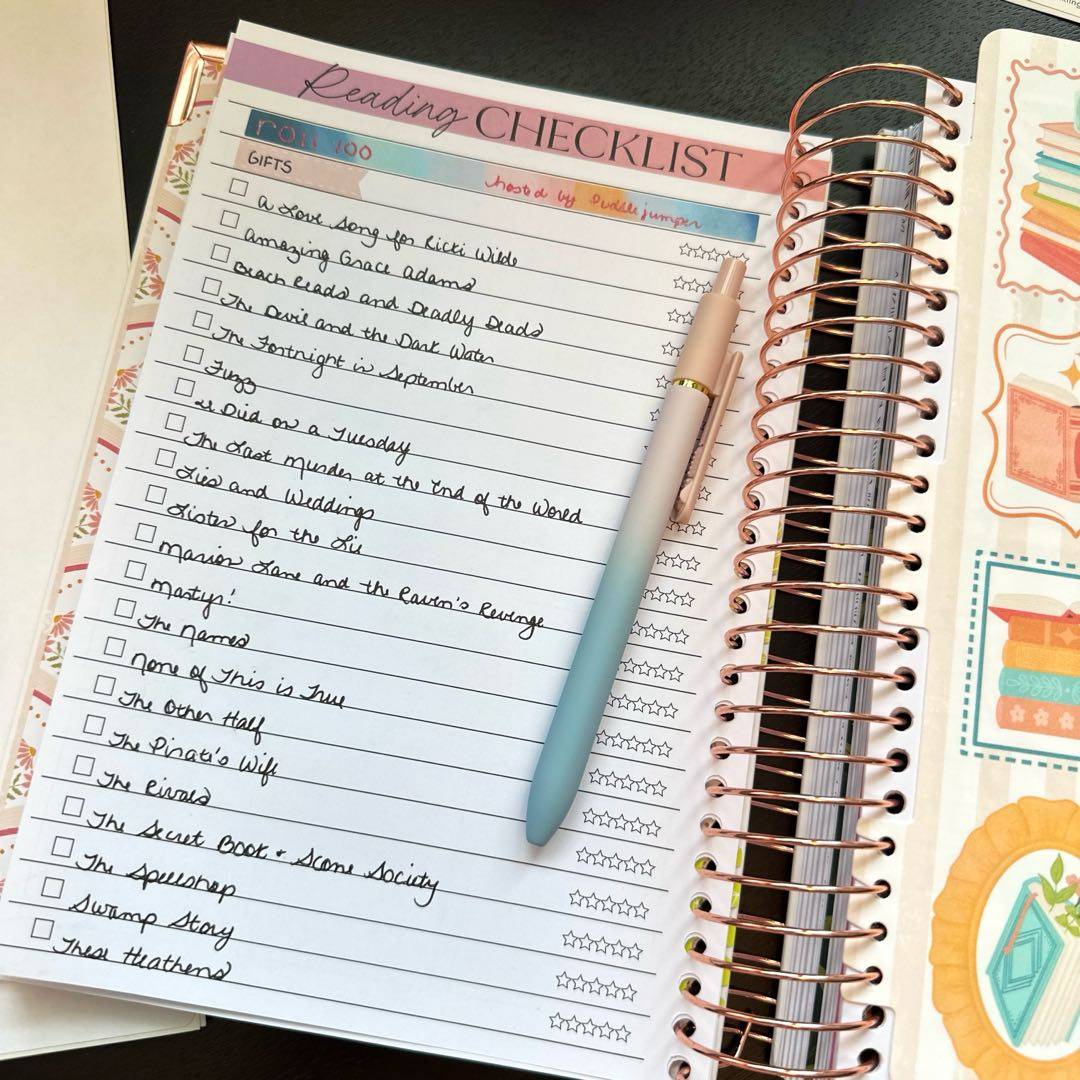 Reading CHECKLIST
roll 100
hosted by Puddlejumper
GIFTS
A Love Song for Ricki Wilde
Amazing Grace Adams
Beach Reads and Deadly Deads
The Devil and the Dark Water
The Fortnight in September
Fuzz
It Died on a Tuesday
The Last Murder at the End of the World
Lies and Weddings
Listen for the Lie
Marion Lane and the Raven's Revenge
Martyr!
The Names
None of This is True
The Other Half
The Pirate's Wife
The Rivals
The Secret Book + Scone Society
The Spellshop
Swamp Story
These Heathens